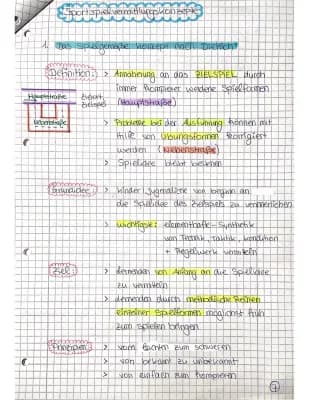 Sportspielvermittlungskonzepte
1. Das Spielgemäße Konzept nach Dietrich
Definition: > Annäherung an das ZIELSPIEL durch
immer komplexer werdene Spielformen
(Hauptstraße)
Hauptstraße
Nebenstraße
> Probleme bei der Ausführung können mit
Hilfe von Übungsformen korrigiert
werden (Nebenstraße)
> Spielidee bleibt bestehen
Grundidee: > Kinder Jugendliche von Beginn an
die Spielidee des Zielspiels zu vermitteln
> wichtigste: elementhafte-Synthetik
von Technik, Taktik, Kondition
+ Regelwerk vermitteln
Ziel: > Lernenden von Anfang an die Spielidee
zu vermitteln
> Lernenden durch methodische Reihen
einzelner Spielformen möglichst früh
zum spielen bringen
Prinzipien: > vom leichten zum schweren
> von bekannt zu unbekannt
> von einfach zum komplexen
1